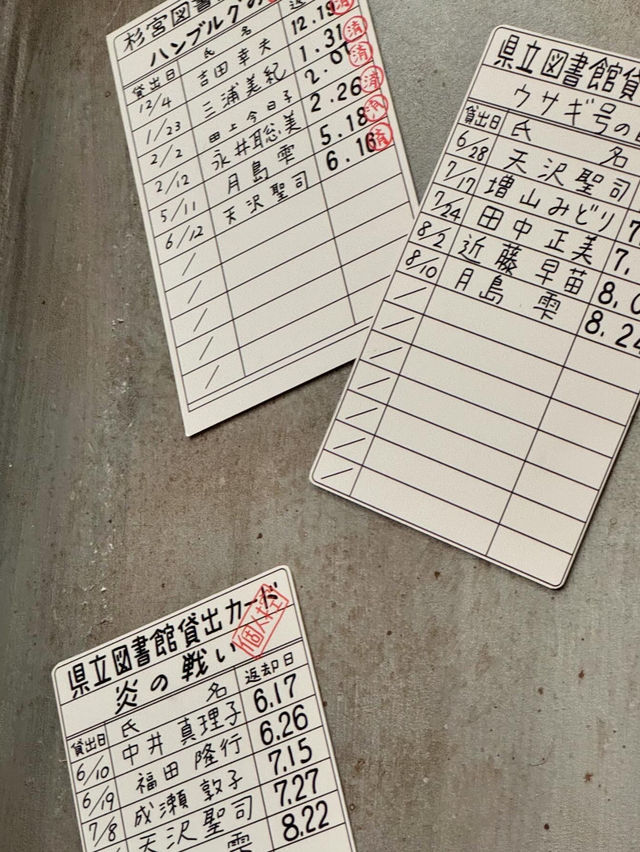 杉宮図書
ハンブルグの
貸出日 氏 名 返
12/4 吉田幸夫 12.19 済
1/23 三浦美紀 1.31 済
2/2 田上今日子 2.07 済
2/12 永井聡美 2.26 済
5/11 月島雫 5.18 済
6/12 天沢聖司 6.16 済
県立図書館貸
ウサギ号の
貸出日 氏 名
6/28 天沢聖司
7/17 増山みどり 7.
7/24 田中正美 7.
8/2 近藤早苗 8.0
8/10 月島雫 8.24
県立図書館貸出カード
炎の戦い
貸出日 氏 名 返却日
6/10 中井真理子 6.17
6/19 福田隆行 6.26
7/8 成瀬敦子 7.15
天沢聖司 7.27
雫 8.22